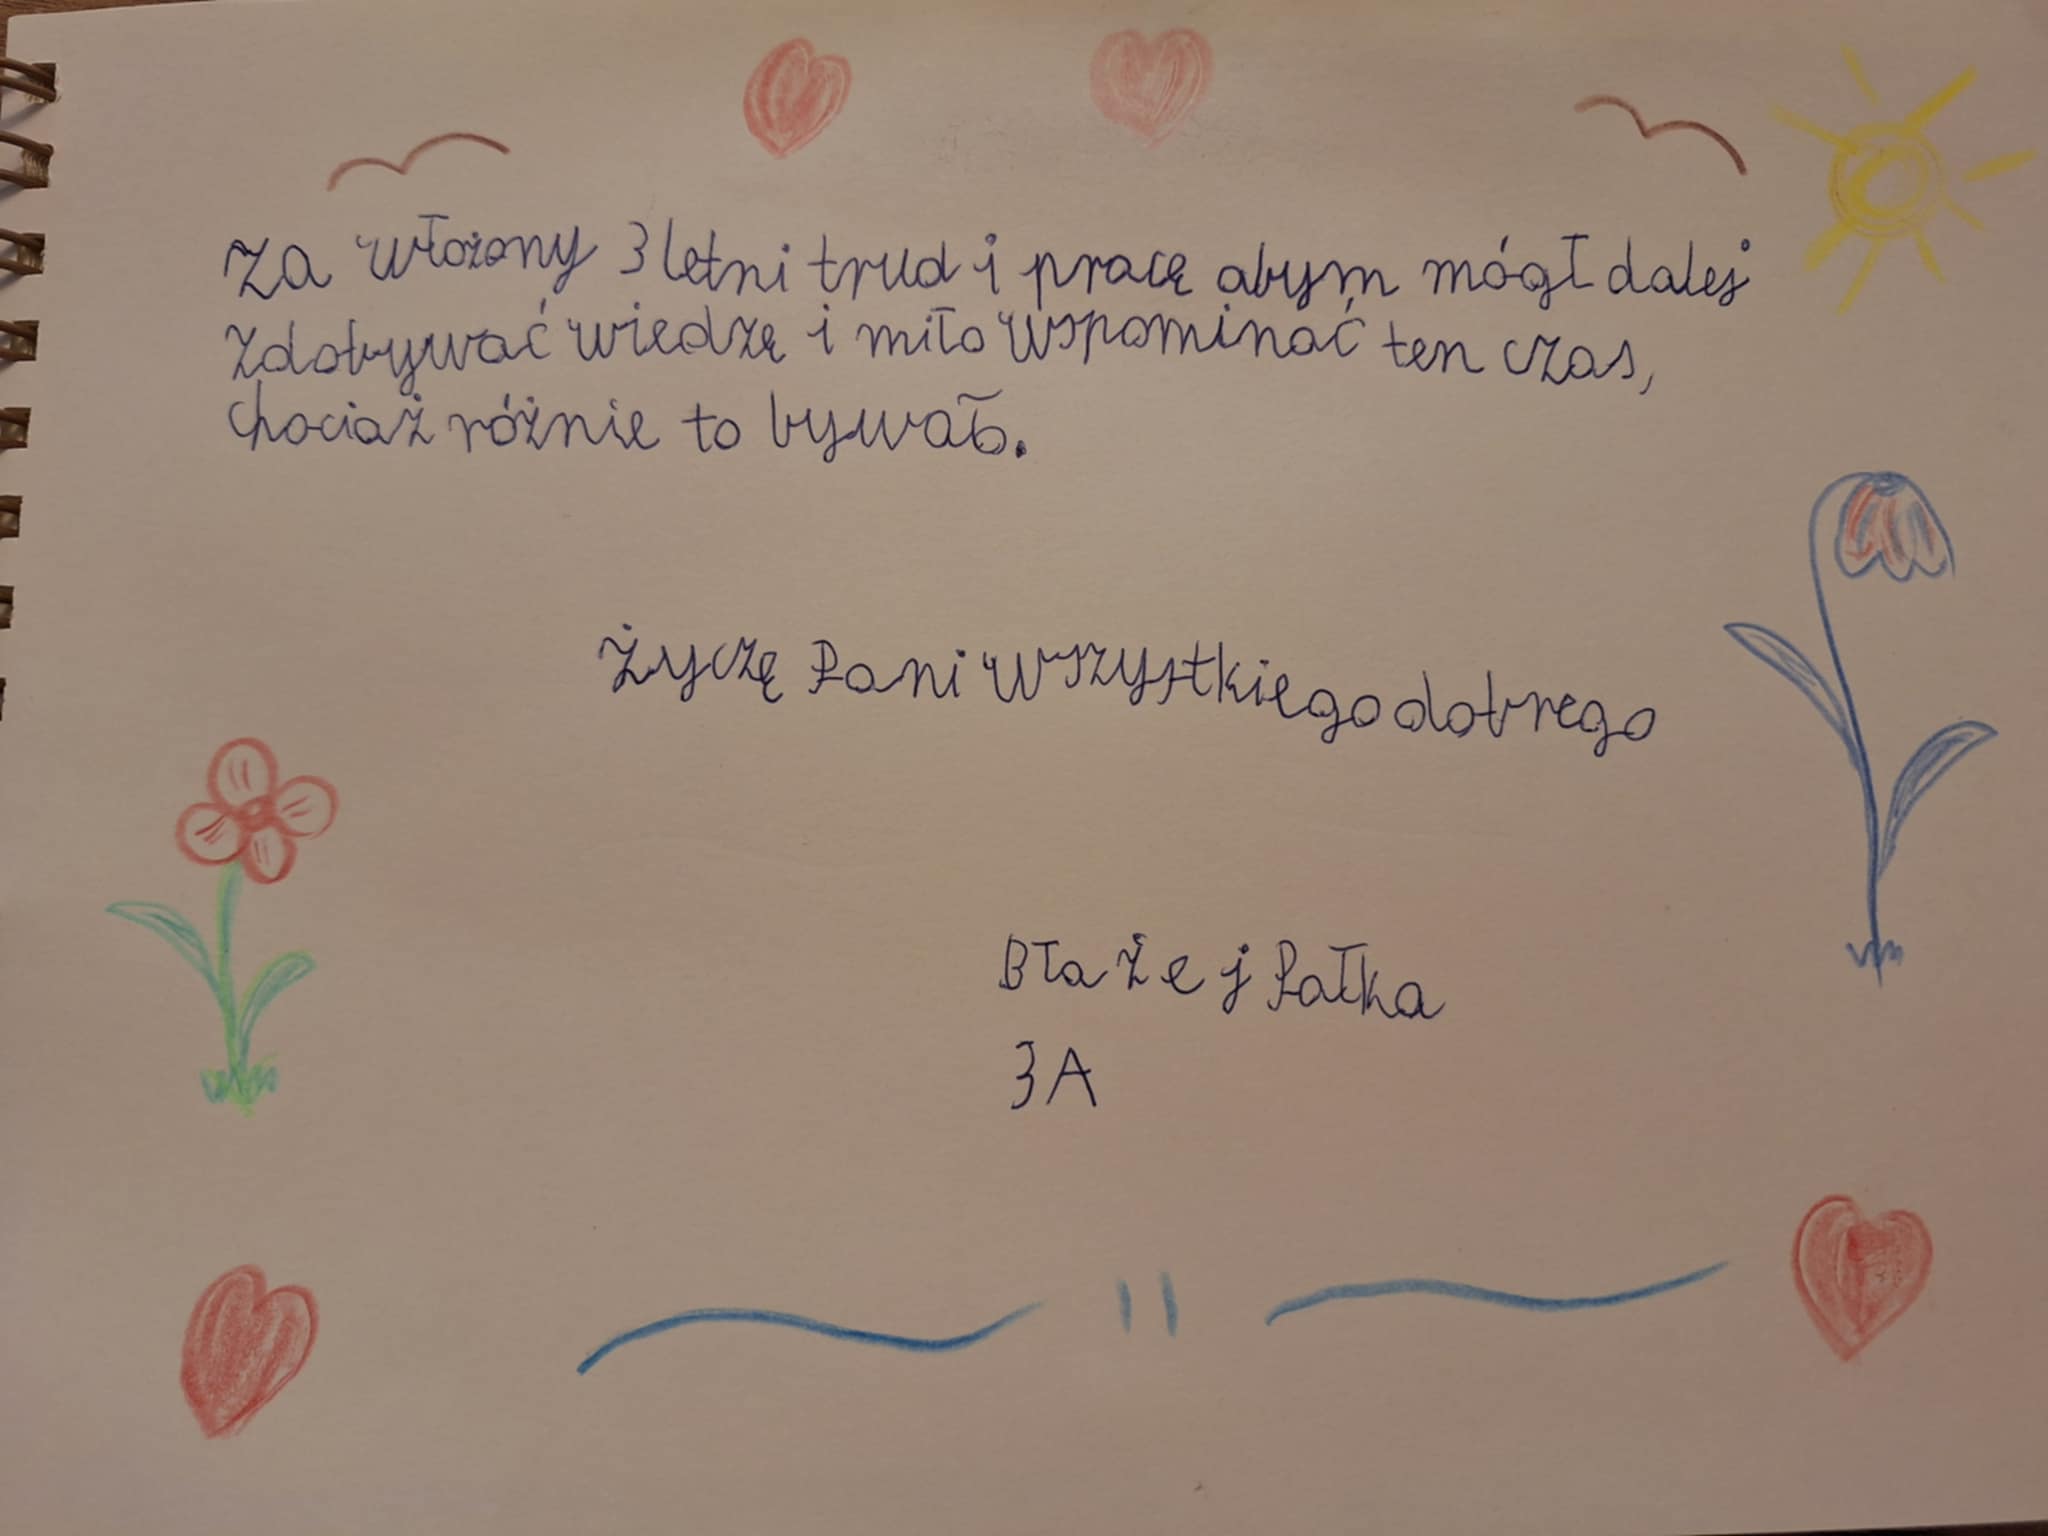 Za włożony 3 letni trud i pracę abym mógł dalej
zdobywać wiedzę i miło wspominać ten czas,
chociaż różnie to bywało.
Życzę Pani wszystkiego dobrego
Błażej Pałka
3A